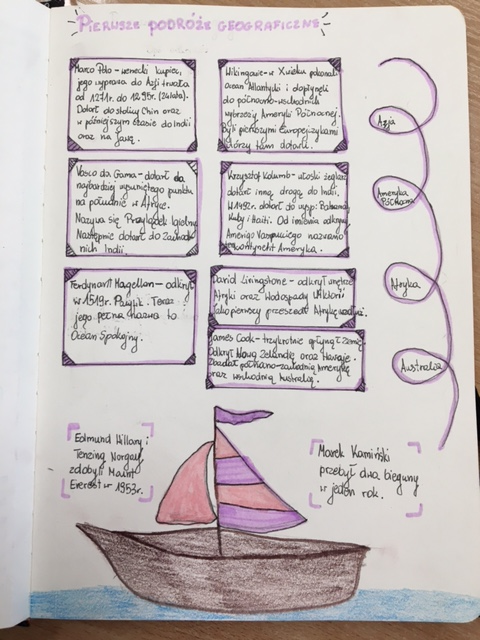 PIERWSZE PODRÓŻE GEOGRAFICZNE
Marco Polo - wenecki kupiec,
jego wyprawa do Azji trwała
od 1271r. do 1295r. (24 lata).
Dotarł do stolicy Chin oraz
w późniejszym czasie do Indii
oraz na Jawę.
Wikingowie - w X wieku pokonali
ocean Atlantycki i dopłynęli
do północno-wschodnich
wybrzeży Ameryki Północnej.
Byli pierwszymi Europejczykami
którzy tam dotarli.
Vasco da Gama - dotarł do
najbardziej wysuniętego punktu
na południe w Afryce.
Nazywa się Przylądek Igielny
Następnie dotarł do
nich Indii.
Krzysztof Kolumb - włoski żeglarz
dotarł inną drogą do Indii.
W 1492r. dotarł do wysp: Bahama
Kuby i Haiti. Od imienia odkrywcy
Amerigo nazwano
kontynent Ameryka.
Ferdynant Magellan - odkrył
w 1519r. Pacyfik. Teraz
jego pełna nazwa to
Ocean Spokojny.
David Livingstone - odkrył wnętrze
Afryki oraz Wodospady Wiktorii
Jako pierwszy przeszedł Afrykę
James Cook - trzykrotnie opłynął Ziemię.
Odkrył Nową Zelandię oraz Hawaje.
Zbadał północno-zachodnią Amerykę
oraz wschodnią Australię.
Azja
Ameryka
Północna
Afryka
Australia
Edmund Hillary i
Tenzing Norgay
zdobyli Mount
Everest w 1953r.
Marek Kamiński
przebył dwa bieguny
w jeden rok.